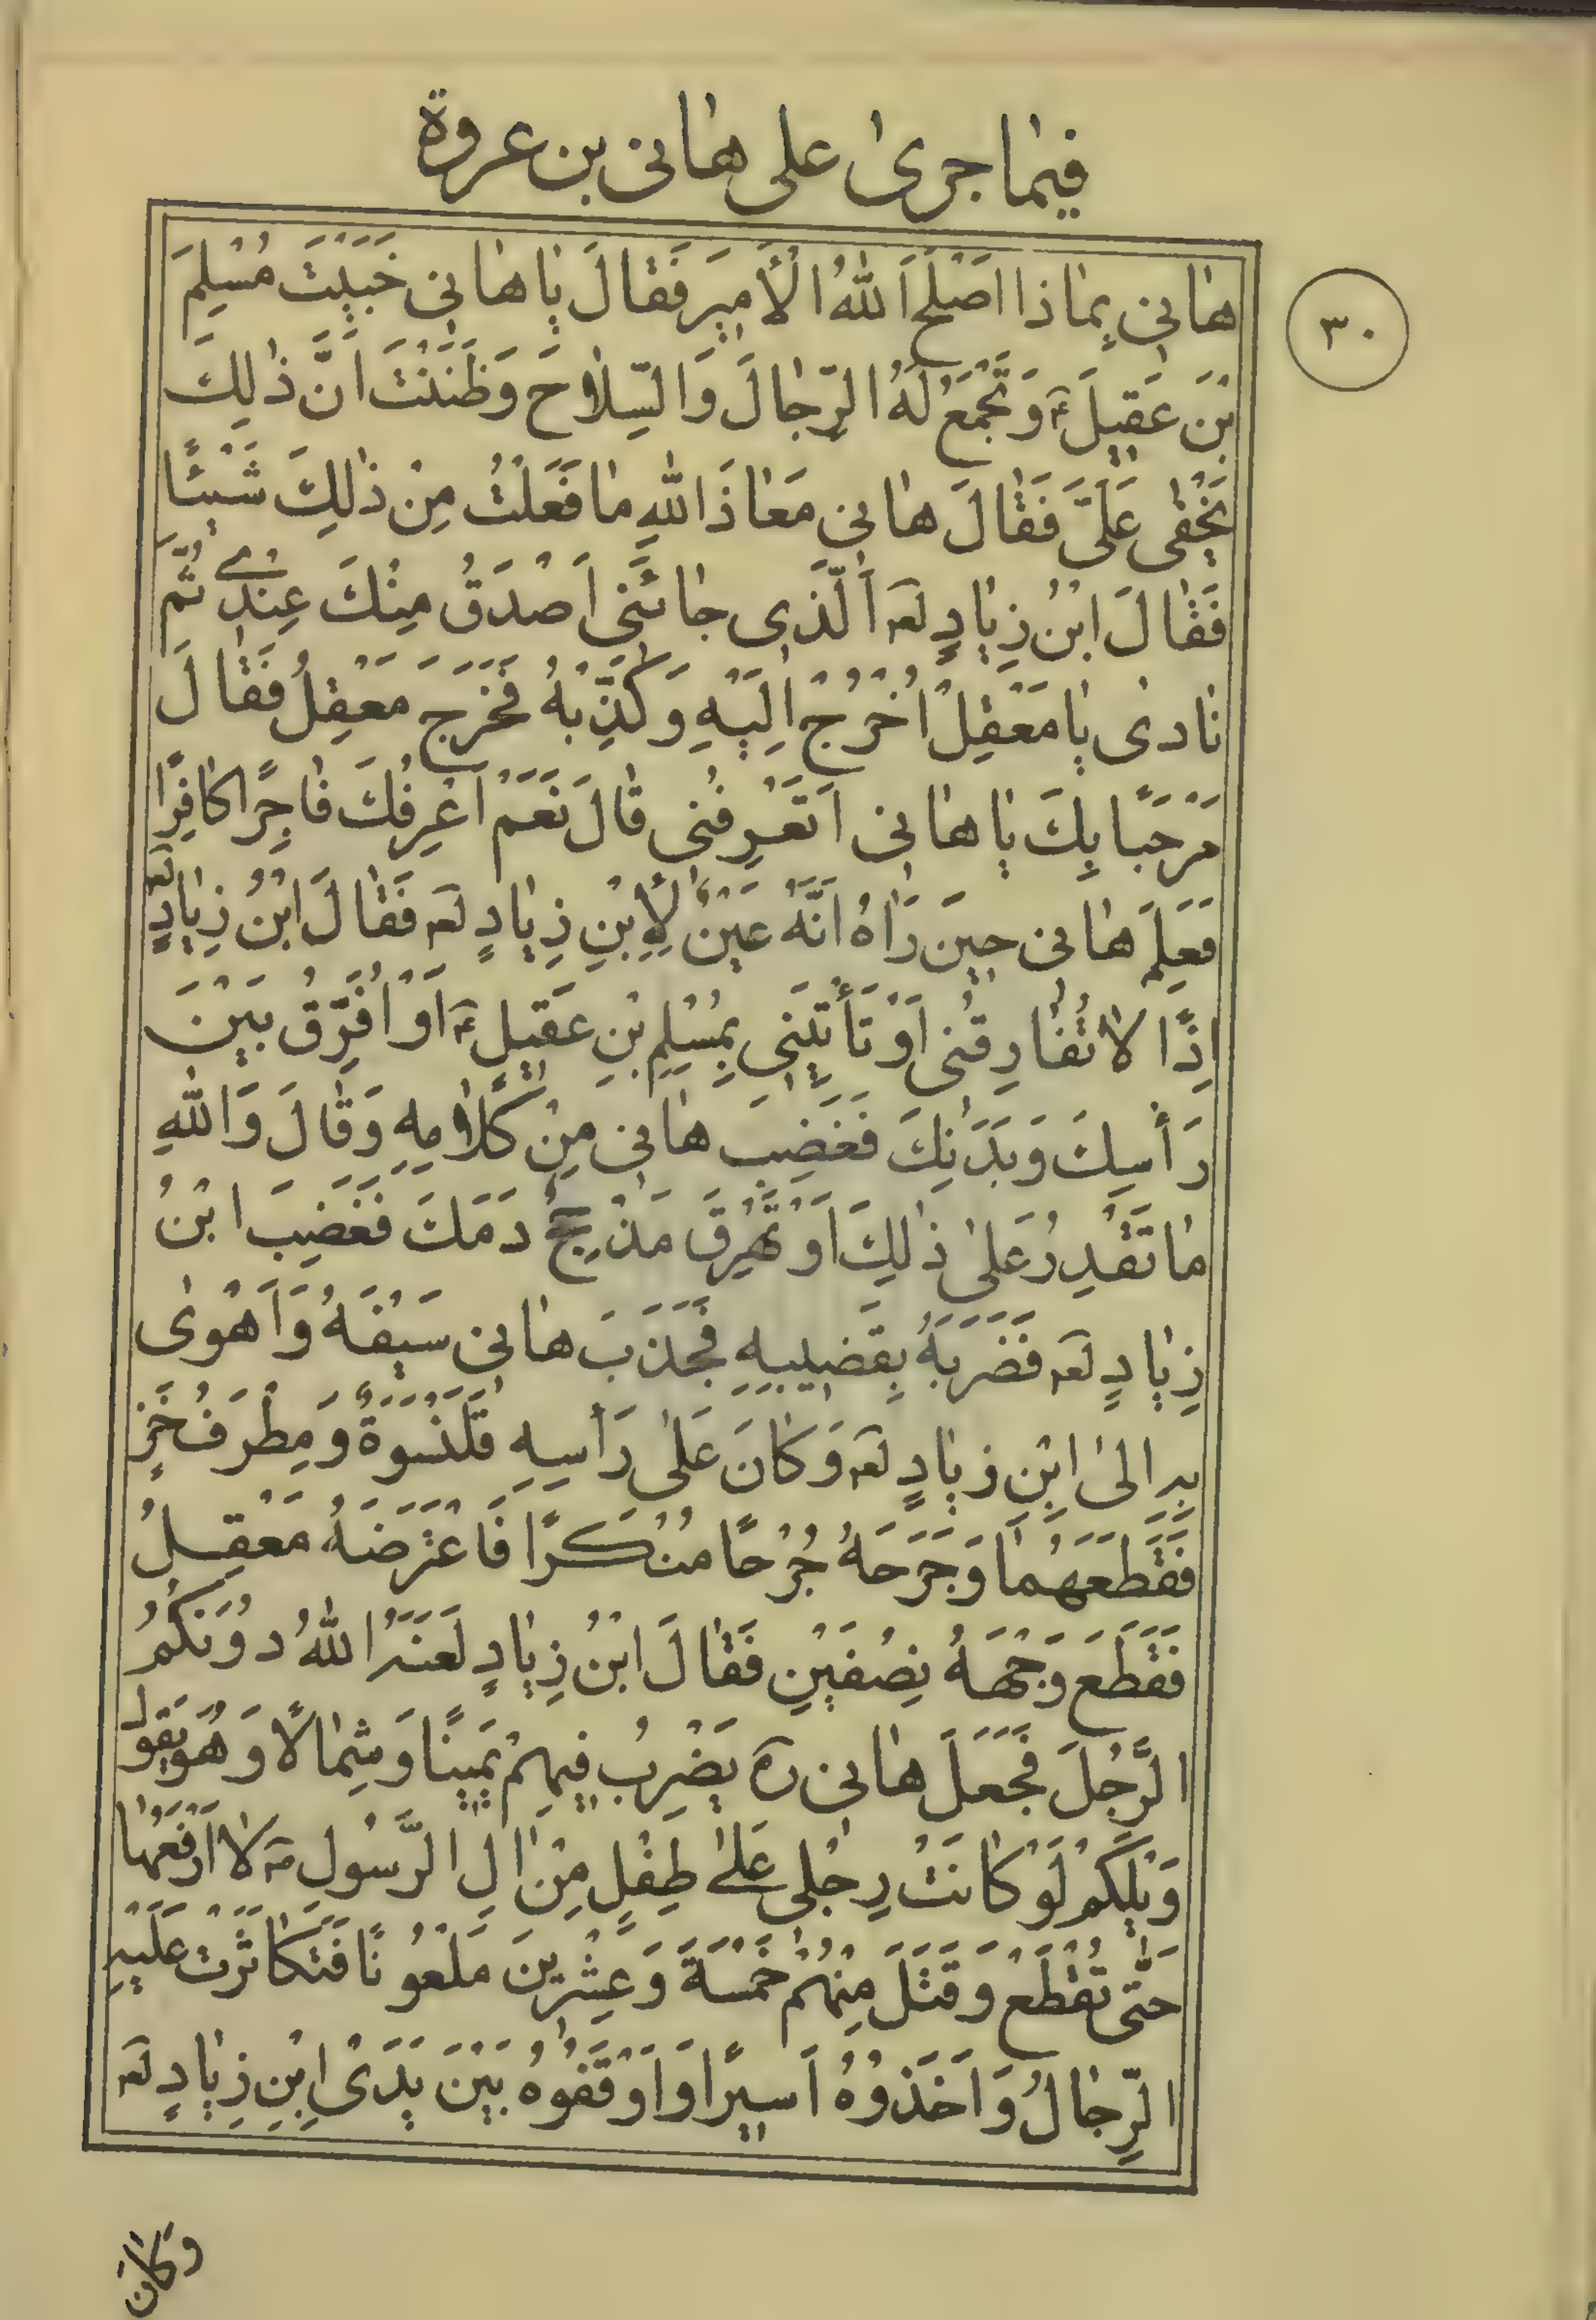 فيما جرى على هانى بن عروة
٣٠
هانى بِماذا اَصْلَحَ اللهُ الْأَميرَ فَقالَ يا هانى خَبَيْتَ مُسْلِمَ
بْنَ عَقيلَ ؑ وَ تَجْمَعُ لَهُ الرِّجالَ وَالسِّلاحَ وَظَنَنْتَ اَنَّ ذٰلِكَ
يَخْفى عَلَىَّ فَقالَ هانى مَعاذَ اللهِ ما فَعَلْتُ مِنْ ذٰلِكَ شَيْئًا
فَقالَ ابْنُ زِيادٍ لعہ اَلَّذى جائَنى اَصْدَقُ مِنْكَ عِنْدے ثُمَّ
نادى يا مَعْقِلُ اُخْرُجْ اِلَيْهِ وَ كَذِّبْهُ فَخَرَجَ مَعْقِلُ فَقالَ
مَرْحَبًا بِكَ يا هانى اَتَعْرِفُنى قالَ نَعَمْ اَعْرِفُكَ فاجِرًا كافِرًا
فَعَلِمَ هانى حينَ رَاٰهُ اَنَّهُ عَيْنٌ لِأِبْنِ زِيادٍ لعہ فَقالَ ابْنُ زِيادٍ لعہ
اِذًا لا تُفارِقُنى اَوْ تَأْتِيَنى بِمُسْلِمِ بْنِ عَقيلٍ ؑ اَوْ اُفَرِّقُ بَيْنَ
رَأْسِكَ وَ بَدَنِكَ فَغَضِبَ هانى مِنْ كَلامِهِ وَ قالَ وَاللهِ
ما تَقْدِرُ عَلىٰ ذٰلِكَ اَوْ تُهْرِقَ مَذْحِجُ دَمَكَ فَغَضِبَ ابْنُ
زِيادٍ لعہ فَضَرَبَهُ بِقَضيبِهِ فَجَذَبَ هانى سَيْفَهُ وَ اَهْوىٰ
بِهِ اِلىٰ ابْنِ زِيادٍ لعہ وَ كانَ عَلىٰ رَأْسِهِ قَلَنْسُوَةٌ وَ مِطْرَفُ خَزٍّ
فَقَطَعَهُما وَ جَرَحَهُ جُرْحًا مُنْكَرًا فَاعْتَرَضَهُ مَعْقِلُ
فَقَطَعَ وَجْهَهُ نِصْفَيْنِ فَقالَ ابْنُ زِيادٍ لَعَنَهُ اللهُ دُونَكُمُ
الرَّجُلَ فَجَعَلَ هانى ره يَضْرِبُ فيهِمْ يَمينًا وَ شِمالًا وَ هُوَ يَقولُ
وَيْلَكُمْ لَوْ كانَتْ رِجْلى عَلىٰ طِفْلٍ مِنْ اٰلِ الرَّسُولِ ؐ لا اَرْفَعُها
حَتّى تُقْطَعَ وَ قَتَلَ مِنْهُمْ خَمْسَةَ وَ عِشْرينَ مَلْعُونًا فَتَكاثَرَتْ عَلَيْهِ
الرِّجالُ وَ اَخَذُوهُ اَسيرًا وَ اَوْقَفُوهُ بَيْنَ يَدَىْ اِبْنِ زِيادٍ لعہ
وَ كانَ